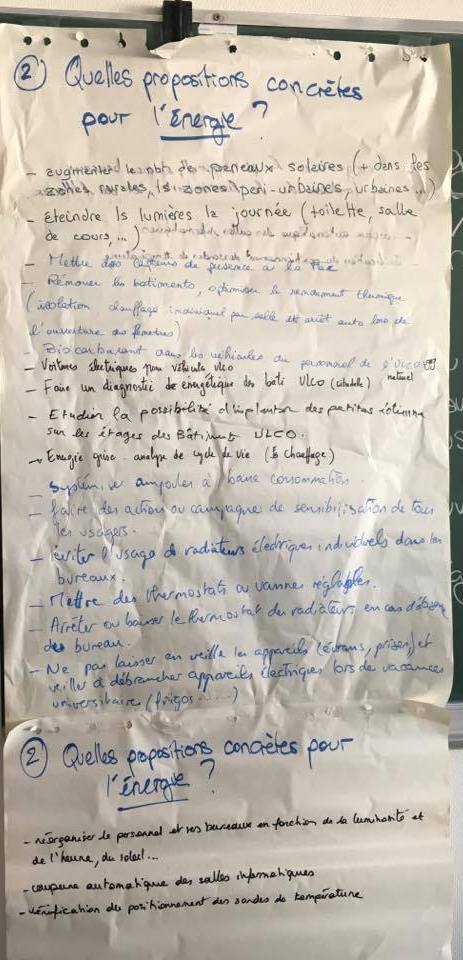 2) Quelles propositions concrètes
pour l'énergie ?
- augmenter le nbr de panneaux solaires (+ dans les
zones rurales, ls zones péri-urbaines, urbaines ...)
- éteindre ls lumières la journée (toilette, salle
de cours, ...)
- Mettre des capteurs de présence à la
- Rénover les batiments, optimiser le rendement thermique
(isolation chauffage individuel par salle et arrêt auto lors de
l'ouverture des fenêtres)
- Bio carburant dans les véhicules du personnel de l'ULCO
- Voitures électriques pour véhicule ulco
naturel
- Faire un diagnostic de énergétique des bati ULCO (citadelle)
- Etudier la possibilité d'implanter des petites éolienne
sur les étages des Bâtiments ULCO.
- Energie grise - analyse de cycle de vie (chauffage)
- ampoules à basse consommation.
- faire des action ou campagne de sensibilisation de tous
les usagers.
- éviter l'usage de radiateurs électriques individuels dans les
bureaux.
- Mettre des thermostats ou vannes réglables.
- Arrêter ou baisser le thermostat des radiateurs en cas
des bureau.
- Ne pas laisser en veille les appareils (écrans, prises) et
veiller à débrancher appareils électriques lors de vacances
universitaire (frigos .....)
2) Quelles propositions concrètes pour
l'énergie ?
- réorganiser le personnel et ses bureaux en fonction de la luminosité et
de l'heure, du soleil...
- coupure automatique des salles informatiques
- vérification du positionnement des sondes de température